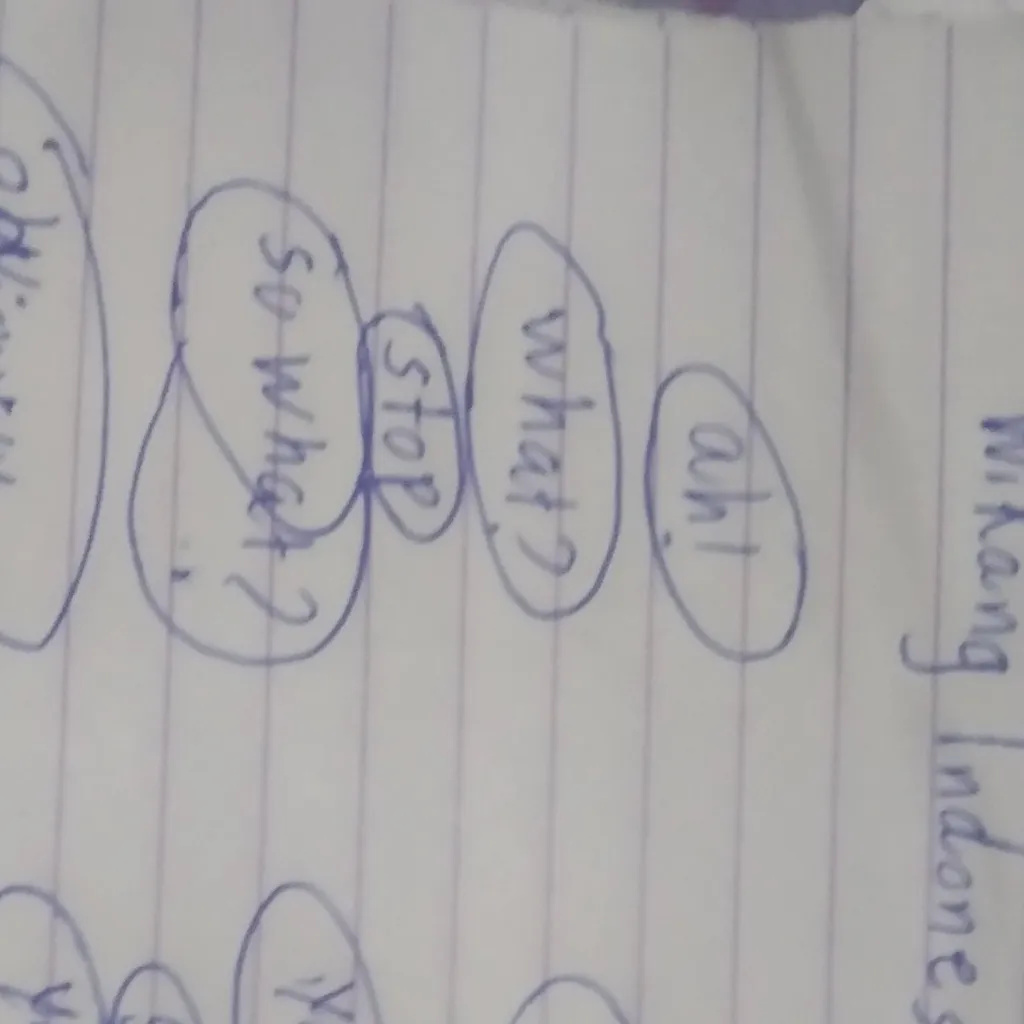 Wikang Indones
ah!
what?
stop
so what?